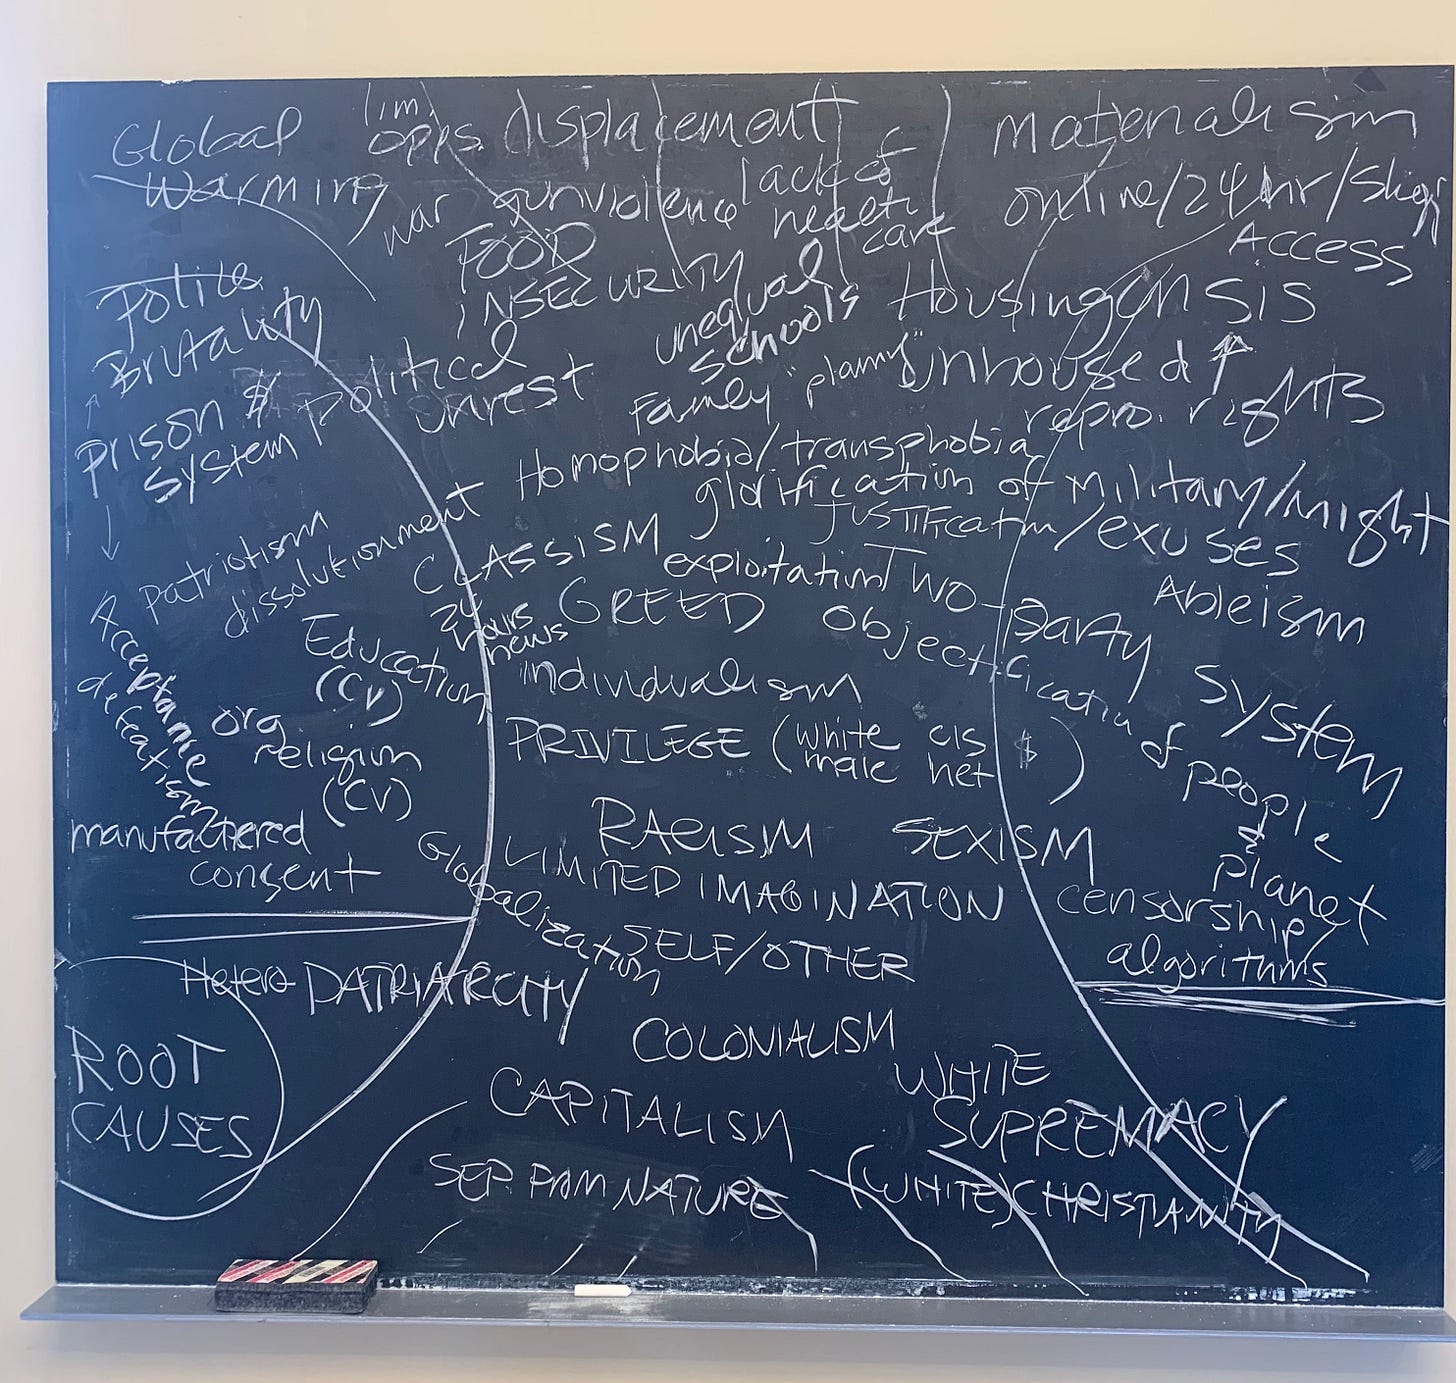 Global
Warming
lim.
opps.
displacement
materialism
war
gun violence
lack of
health
care
online/24 hr/
Access
FOOD
INSECURITY
unequal
schools
Housing crisis
Police
Brutality
prison $
system
political
unrest
Family "planning"
unhoused ↑
repro. rights
Homophobia/transphobia
glorification of military/might
justification/exuses
patriotism
dissolutionment
CLASSISM
exploitation
Two-Party
System
Ableism
24
hours
news
GREED
Objectification of
people
&
planet
Education
(CV)
individualism
Acceptance
defeatism
org
religion
(CV)
PRIVILEGE (white cis $)
male het
manufactured
consent
RACISM
SEXISM
Globalization
LIMITED IMAGINATION
censorship/
algorithms
SELF/OTHER
Hetero-PATRIARCHY
COLONIALISM
ROOT
CAUSES
CAPITALISM
WHITE
SUPREMACY
SEP. FROM NATURE
(WHITE) CHRISTIANITY